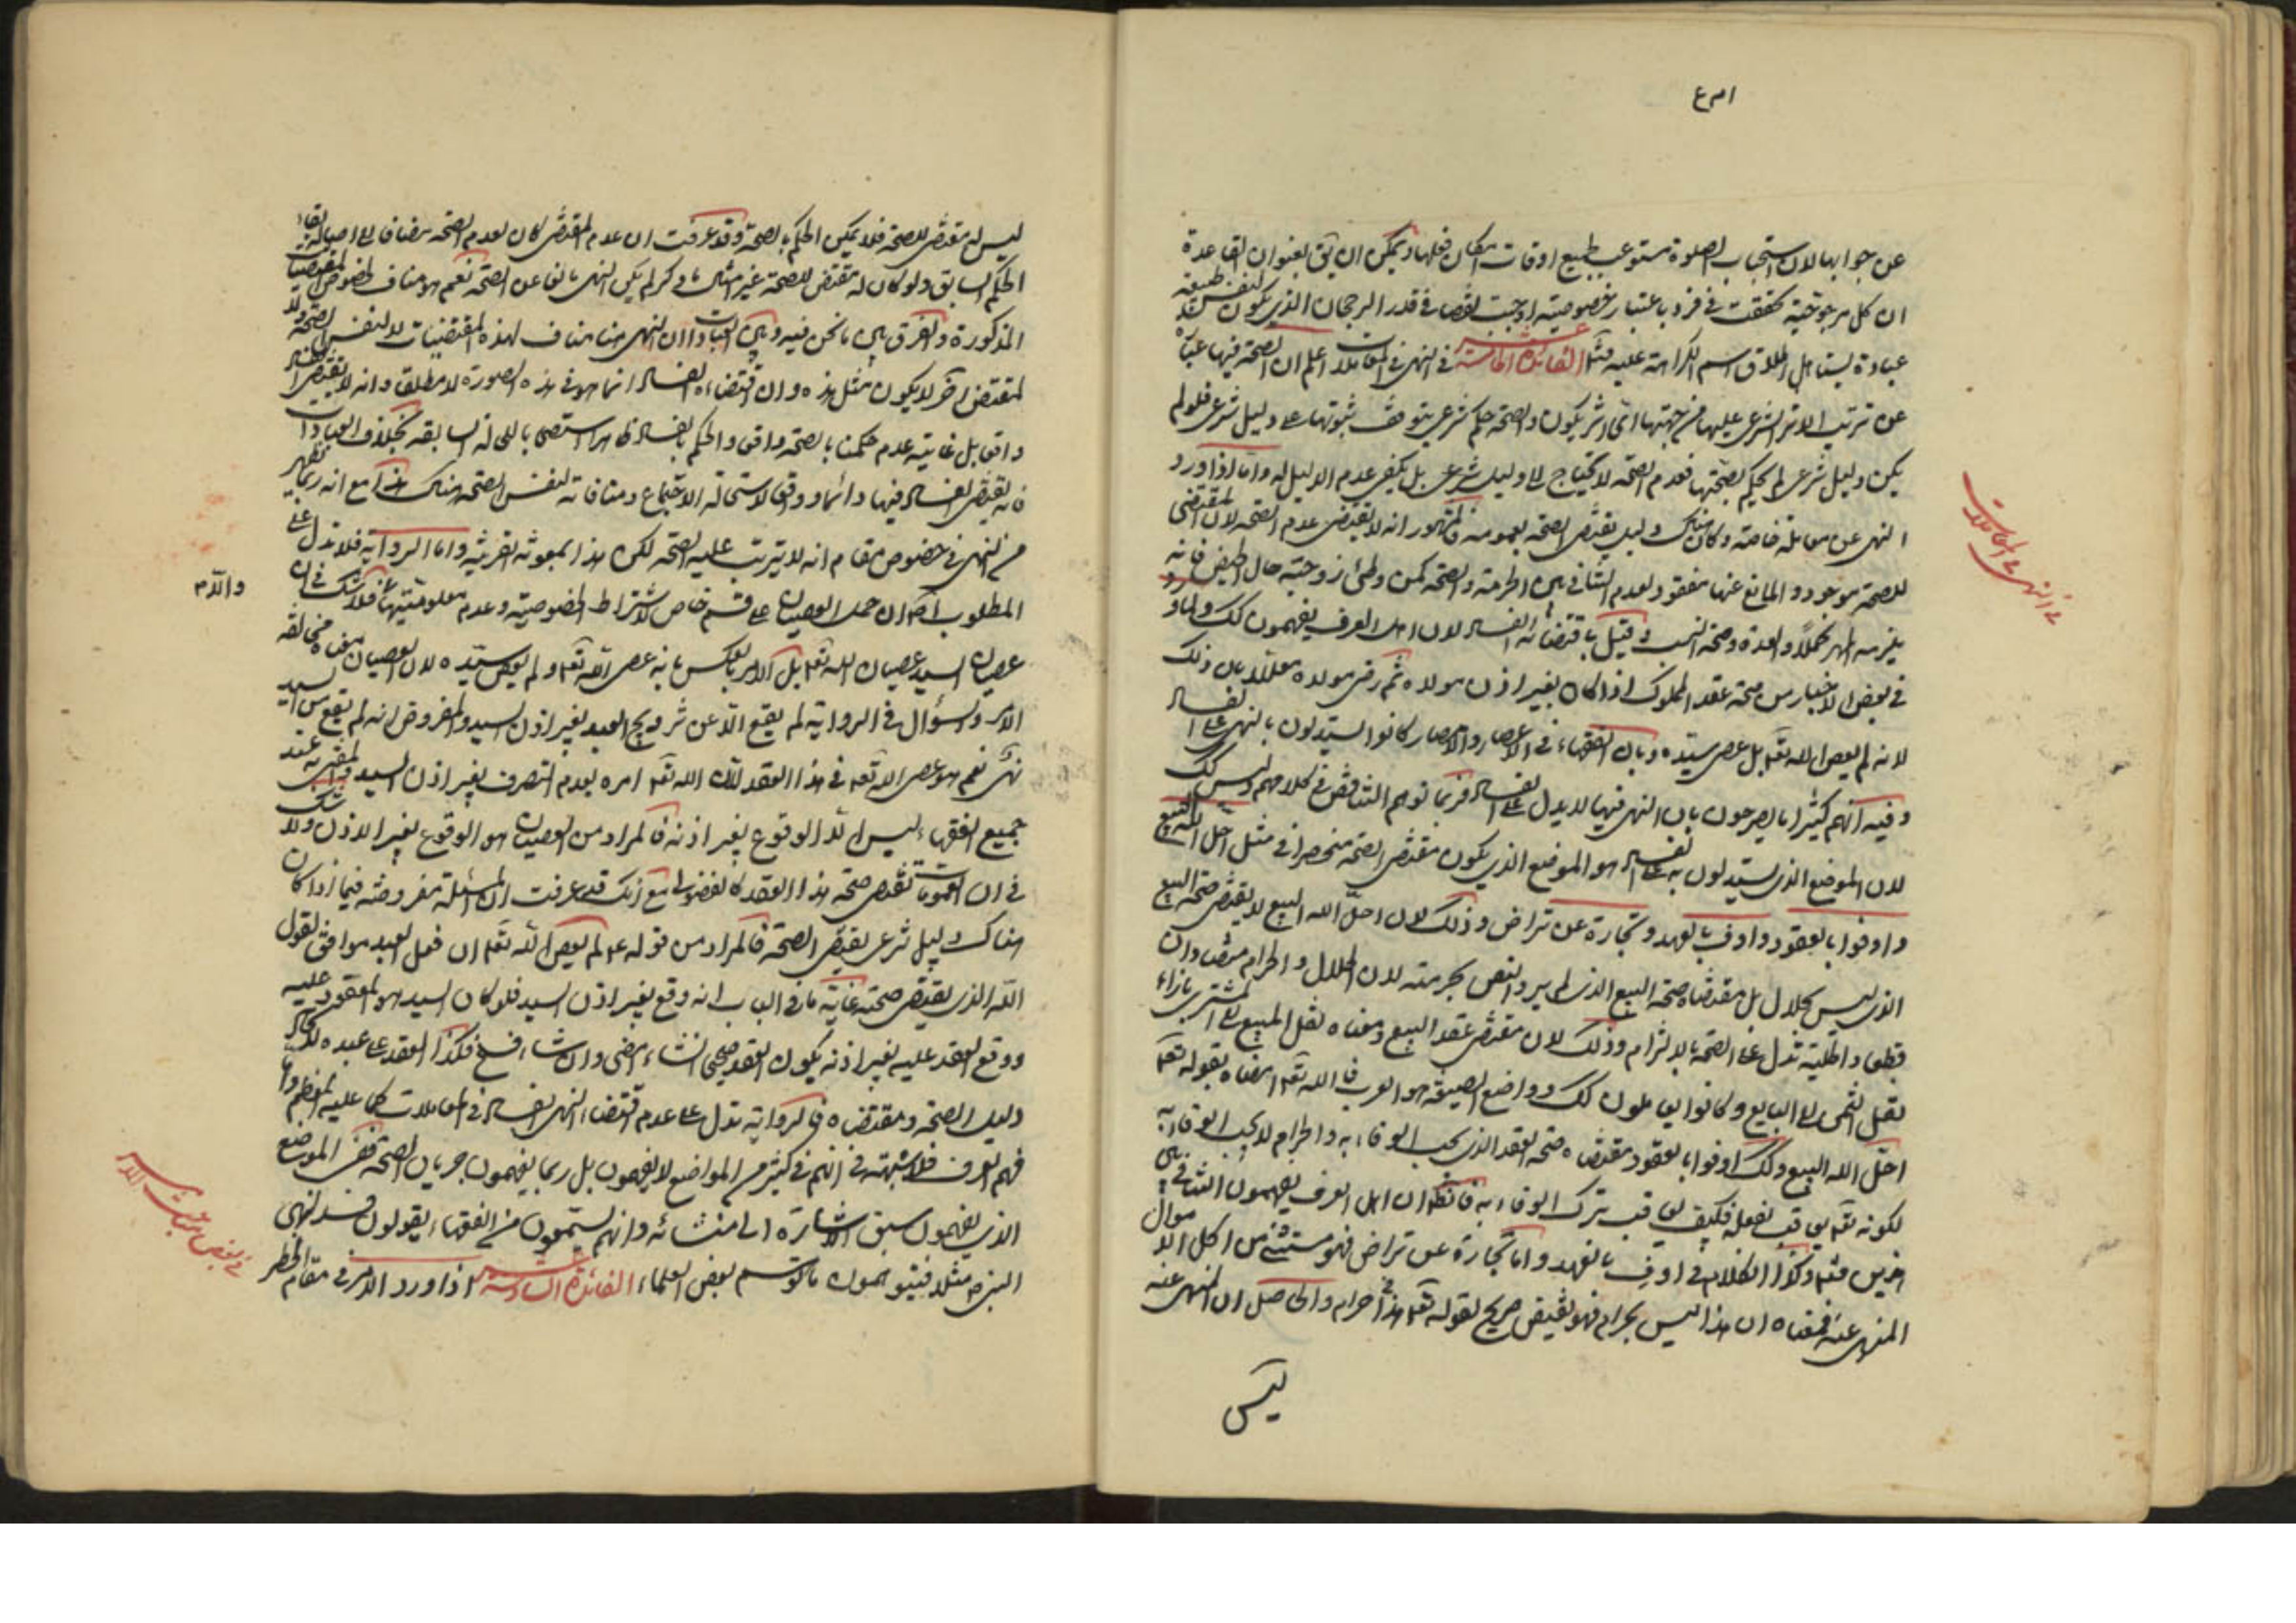 عن جوابها لان استحباب الصلوة مستوعب لجميع اوقات امكان فعلها ويمكن ان يق بعنوان القاعدة
ان كل مرجوحية تحققت في فرد باعتبار خصوصيته اوجبت نقصا في قدر الرجحان الذي يكون لنفس طبيعة
عبادة يستاهل اطلاق اسم الكراهة عليه الفائدة الخامسة عشر في النهي في المعاملات اعلم ان الصحة فيها عبارة
عن ترتب الاثر الشرعي عليها من جهتها اي اثر يكون والصحة حكم شرعي يتوقف ثبوتها على دليل شرعي فلو لم
يكن دليل شرعي لم يحكم بصحتها فعدم الصحة لا يحتاج الى دليل شرعي بل يكفي عدم الدليل له واما اذا ورد
النهي عن معاملة خاصة وكان هناك دليل يقتضي الصحة بعمومه فالمشهور انه لا يقتضي عدم الصحة لان المقتضي
للصحة موجود والمانع عنها مفقود لعدم التنافي بين الحرمة والصحة كمن وطئ زوجته حال الحيض فانه
يلزمه المهر كملا والعدة وصحة النسب وقيل باقتضائه الفساد لان اهل العرف يفهمون كك ولما ورد
في بعض الاخبار من صحة عقد المملوك اذا كان بغير اذن مولاه ثم رضي مولاه معللا بان ذلك
لانه لم يعص الله تعم بل عصى سيده وبان الفقهاء في الاعصار والامصار كانوا يستدلون بالنهي على الفساد
وفيه انهم كثيرا ما يصرحون بان النهي فيها لا يدل على الفساد فربما توهم التناقض في كلامهم وليس كك
لان الموضع الذي يستدلون به على الفساد هو الموضع الذي يكون مقتضي الصحة منحصرا في مثل احل الله البيع
و اوفوا بالعقود و اوف بالعهد و تجارة عن تراض وذلك لان احل الله البيع لا يقتضي صحة البيع
الذي ليس بحلال بل مقتضاه صحة البيع الذي لم يرد النص بحرمته لان الحلال والحرام متضادان
قطعا والحلية تدل على الصحة بالالتزام وذلك لان مقتضى عقد البيع ومعناه نقل المبيع الى المشتري بازاء
نقل الثمن الى البايع وكانوا يعاملون كك وواضع الصيغة هو العرب فالله تعم امضاه بقوله تعم
احل الله البيع وكك اوفوا بالعقود مقتضاه صحة العقد الذي يجب الوفاء به والحرام لا يجب الوفاء به
لكونه تعم يعاقب بفعله فكيف يعاقب بترك الوفاء به فانظر ان اهل العرف يفهمون التنافي بين
امرين وكذا الكلام في اوف بالعهد واما تجارة عن تراض فهو مستثنى من اكل الاموال
المنهي عنه فمعناه ان هذا ليس بحرام فهو نقيض صريح لقوله تعم هذا حرام والحاصل ان المنهي عنه
ليس
في النهي في المعاملات
ليس له مقتضى للصحة فلا يمكن الحكم بالصحة وقد عرفت ان عدم المقتضي كان لعدم الصحة مضافا الى اصالة بقاء
الحكم السابق ولو كان له مقتض للصحة غير امثال ما ذكر لم يكن النهي مانعا عن الصحة نعم هو مناف لخصوص المقتضيات
المذكورة والفرق بين ما نحن فيه وبين العبادات ان النهي هنا مناف لهذه المقتضيات لا لنفس الصحة ولا
لمقتض آخر لا يكون مثل هذه وان اقتضاءه الفساد انما هو في هذه الصورة لا مطلقا وانه لا يقتضي الفساد
واقعا بل غايته عدم حكمنا بالصحة واقعا والحكم بالفساد ظاهرا استصحابا للحالة السابقة بخلاف العبادات
فانه يقتضي الفساد فيها دائما وواقعا لاستحالة الاجتماع ومنافاته لنفس الصحة هناك هذا مع انه ربما يظهر
من النهي في خصوص مقام انه لا يترتب عليه الصحة لكن هذا بمعونة القرينة واما الرواية فلا تدل على
المطلوب اصلا لان حمل العصيان على قسم خاص لاشتراط الخصوصية وعدم معلوميتها فلا شك في ان
عصيان السيد عصيان الله تعم بل الامر بالعكس بانه عصى الله تعم ولم يعص سيده لان العصيان معناه مخالفة
الامر والسؤال في الرواية لم يقع الا عن تزويج العبد بغير اذن السيد والمفروض انه لم يقع من السيد
نهي نعم هو عصى الله تعم في هذا العقد لان الله تعم امره بعدم التصرف بغير اذن السيد والمفتى به عند
جميع الفقهاء ليس الا الوقوع بغير اذنه فالمراد من العصيان هو الوقوع بغير الاذن ولا شك
في ان العمومات تقتضي صحة هذا العقد كالفضولي مع انك قد عرفت ان المسئلة مفروضة فيما اذا كان
هناك دليل شرعي يقتضي الصحة فالمراد من قوله ع لم يعص الله تعم ان فعل العبد موافق لقول
الله الذي يقتضي صحته غاية ما في الباب انه وقع بغير اذن السيد فلو كان السيد هو المعقود عليه
ووقع العقد عليه بغير اذنه يكون العقد صحيحا ان شاء امضى وان شاء فسخ فكذا العقد على عبده
دليل الصحة ومقتضاه فالرواية تدل على عدم اقتضاء النهي الفساد في المعاملات كما عليه المعظم واما
فهم العرف فلا شبهة في انهم في كثير من المواضع لا يفهمون بل ربما يفهمون جريان الصحة ففي الموضع
الذي يفهمون سبق الاشارة الى منشائه وانهم يستمعون من الفقهاء يقولون فسد لنهي
النبي ص مثلا فيتوهمون ما توهم بعض العلماء الفائدة السادسة عشر اذا ورد الامر في مقام الحظر